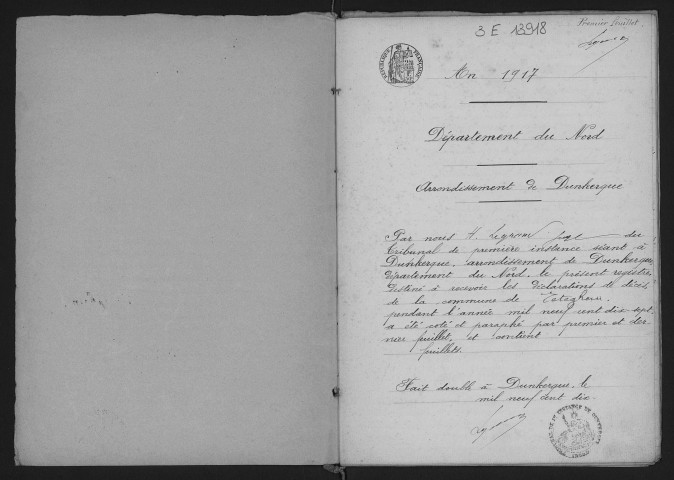 Premier feuillet
3 E 13918
RÉPUBLIQUE FRANÇAISE
An 1917
Département du Nord
Arrondissement de Dunkerque
Par nous H. Legrand Juge du
Tribunal de première instance séant à
Dunkerque, arrondissement de Dunkerque,
département du Nord, le présent registre,
destiné à recevoir les déclarations de décès
de la commune de Téteghem
pendant l'année mil neuf cent dix sept,
a été coté et paraphé par premier et der-
nier feuillet, et contient
feuillets.
Fait double à Dunkerque, le
mil neuf cent dix